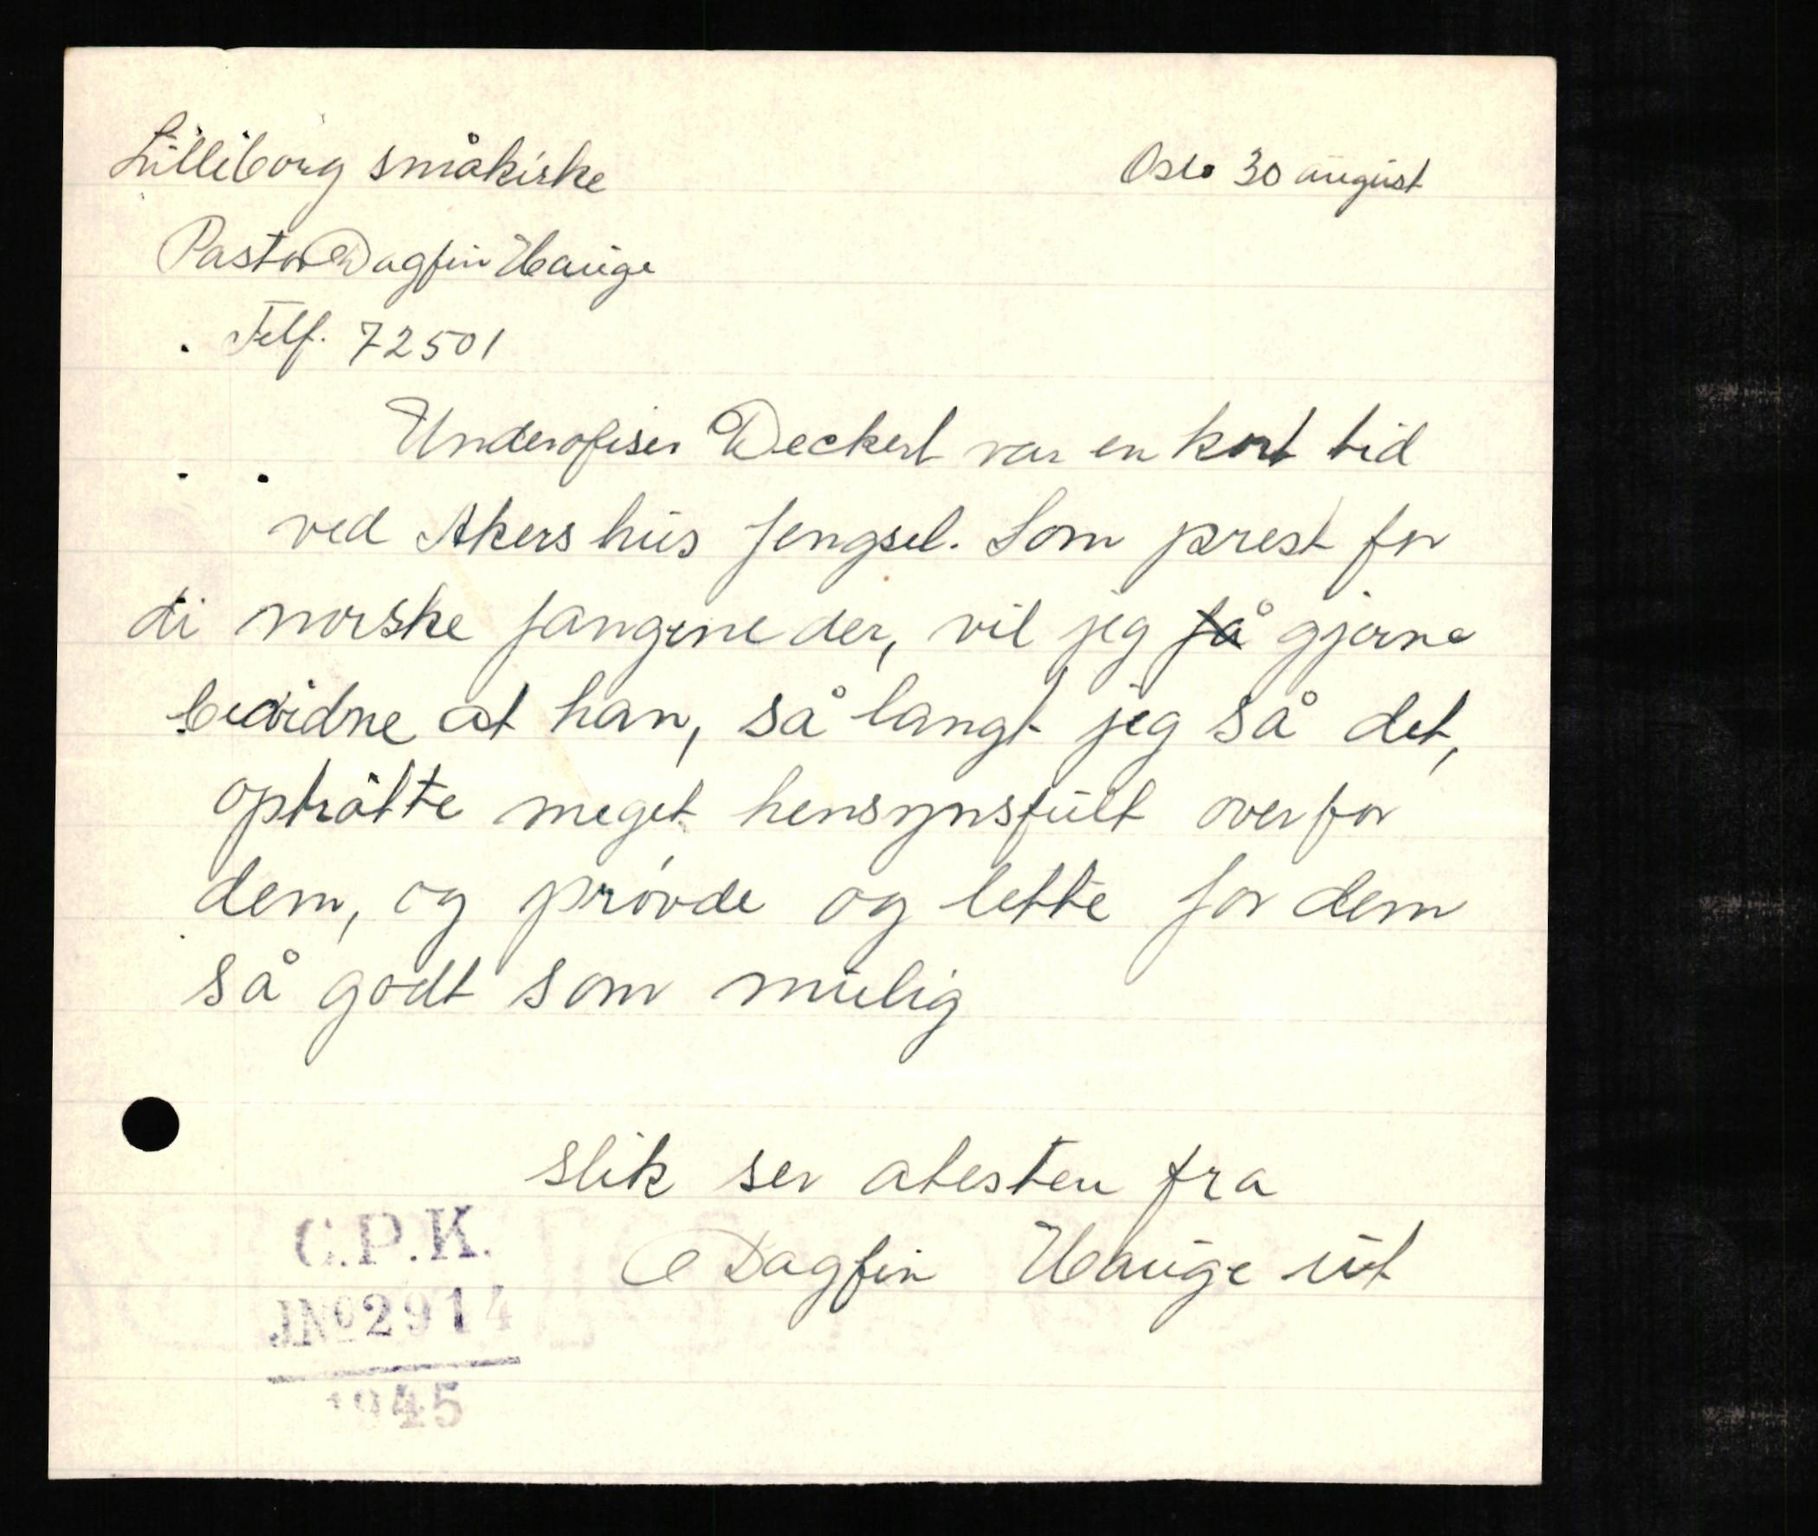 Lilliborg småkirke
Oslo 30 august
Pastor Dagfin Hauge
Telf. 72501
Underofiser Deckert var en kort tid
ved Akershus fengsel. Som prest for
di norske fangene der, vil jeg få gjerne
bevidne at han, så langt jeg så det,
optråtte meget hensynsfult overfor
dem, og prøvde og lette for dem
så godt som mulig
slik ser atesten fra
Dagfin Hauge ut
C.P.K.
J.Nº 2914
1945